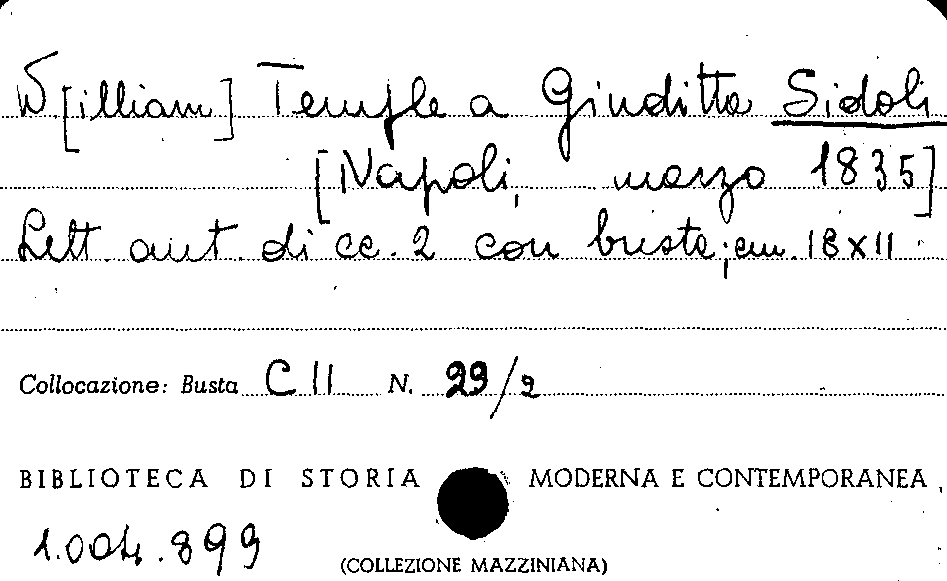 W[illiam] Temple a Giuditta Sidoli
[Napoli, marzo 1835]
Lett. aut. di cc. 2 con busta; cm. 18x11
Collocazione: Busta C II N. 29/2
BIBLIOTECA DI STORIA MODERNA E CONTEMPORANEA
1.004.899
(COLLEZIONE MAZZINIANA)